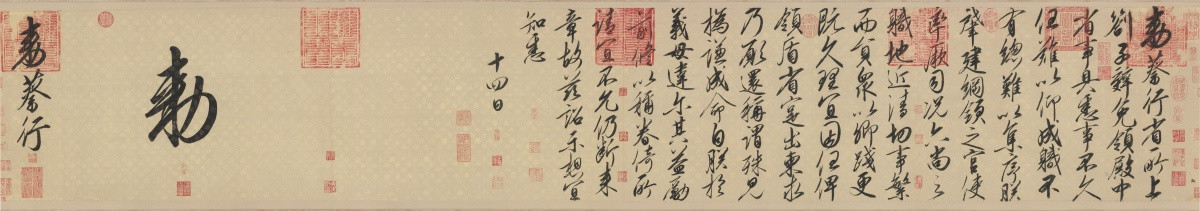 敕蔡行省所上
劄子辭免領殿中
省事具悉事不久
任難以仰成職不
有總難以集序朕
肇建綱領之官使
率厥司況六尚之
職地近清切事繁
而員眾以卿踐更
既久理宜因任俾
領盾省寔出柬求
乃願還稱謂殊見
撝謙成命自朕於
義毋違爾其益勵
前修以稱眷倚所
請宜不允仍斷來
章故茲詔示想宜
知悉
十四日
敕
敕蔡行